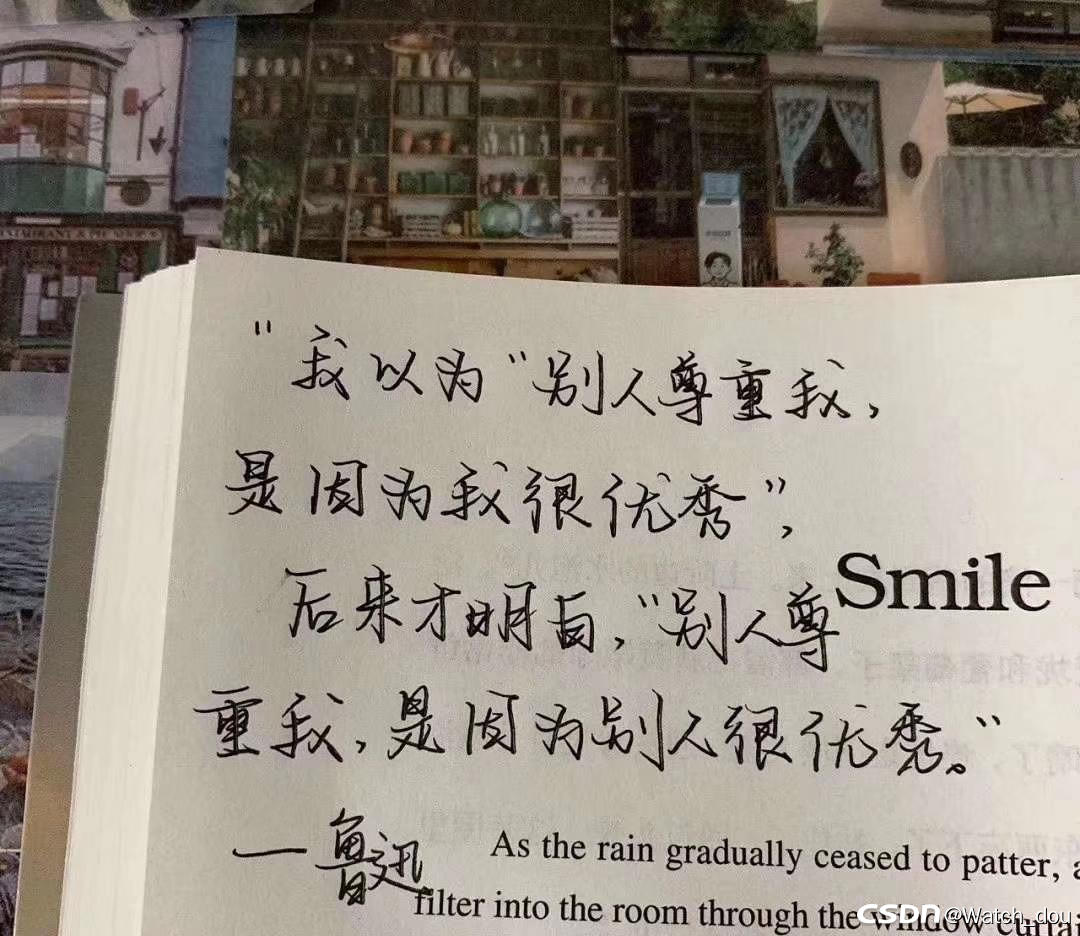 "我以为"别人尊重我,
是因为我很优秀",
后来才明白,"别人尊
重我,是因为别人很优秀。"
Smile
—鲁迅
As the rain gradually ceased to patter, a
filter into the room through the window curtai
CSDN @Watch_dou